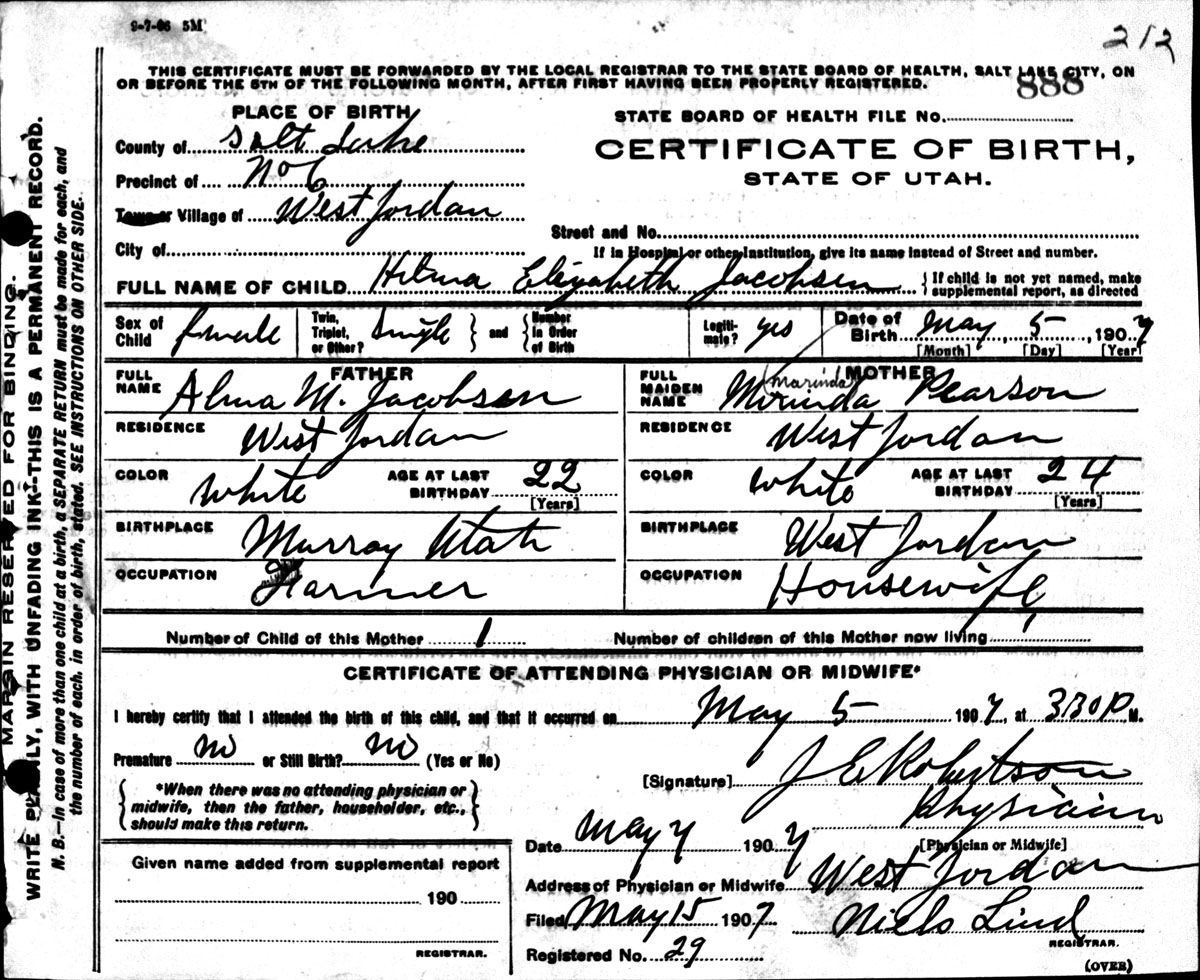 9-7-06 5M
212
THIS CERTIFICATE MUST BE FORWARDED BY THE LOCAL REGISTRAR TO THE STATE BOARD OF HEALTH, SALT LAKE CITY, ON
OR BEFORE THE 5TH OF THE FOLLOWING MONTH, AFTER FIRST HAVING BEEN PROPERLY REGISTERED.
888
PLACE OF BIRTH
STATE BOARD OF HEALTH FILE No.
County of Salt Lake
CERTIFICATE OF BIRTH,
Precinct of No 6
STATE OF UTAH.
Town or Village of West Jordan
Street and No.
City of
If in Hospital or other Institution, give its name instead of Street and number.
FULL NAME OF CHILD Hilma Elizabeth Jacobsen } If child is not yet named, make supplemental report, as directed
Sex of Child female Twin, Triplet, or Other? Single } and { Number in Order of Birth Legiti-mate? yes Date of Birth May 5, 1907
[Month] [Day] [Year]
FATHER MOTHER
FULL NAME Alma M. Jacobsen
FULL MAIDEN NAME Mirinda Pearson
Marinda
RESIDENCE West Jordan
RESIDENCE West Jordan
COLOR white AGE AT LAST BIRTHDAY 22 [Years]
COLOR white AGE AT LAST BIRTHDAY 24 [Years]
BIRTHPLACE Murray Utah
BIRTHPLACE West Jordan
OCCUPATION Farmer
OCCUPATION Housewife
Number of Child of this Mother 1 Number of children of this Mother now living 1
CERTIFICATE OF ATTENDING PHYSICIAN OR MIDWIFE*
I hereby certify that I attended the birth of this child, and that it occurred on May 5 1907, at 3:30 P. M.
Premature No or Still Birth? No (Yes or No)
[Signature] J E Robertson
Physician
[Physician or Midwife]
{ *When there was no attending physician or
midwife, then the father, householder, etc.,
should make this return. }
Date May 7 1907
Given name added from supplemental report
190
REGISTRAR.
Address of Physician or Midwife West Jordan
Filed May 15 1907 Niels Lind
REGISTRAR.
Registered No. 29
(OVER)
MARGIN RESERVED FOR BINDING.
WRITE PLAINLY, WITH UNFADING INK--THIS IS A PERMANENT RECORD.
N. B.—In case of more than one child at a birth, a SEPARATE RETURN must be made for each, and
the number of each, in order of birth, stated. SEE INSTRUCTIONS ON OTHER SIDE.